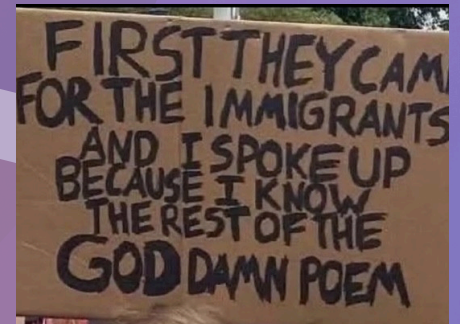 FIRST THEY CAM
FOR THE IMMIGRANTS
AND I SPOKE UP
BECAUSE I KNOW
THE REST OF THE
GOD DAMN POEM